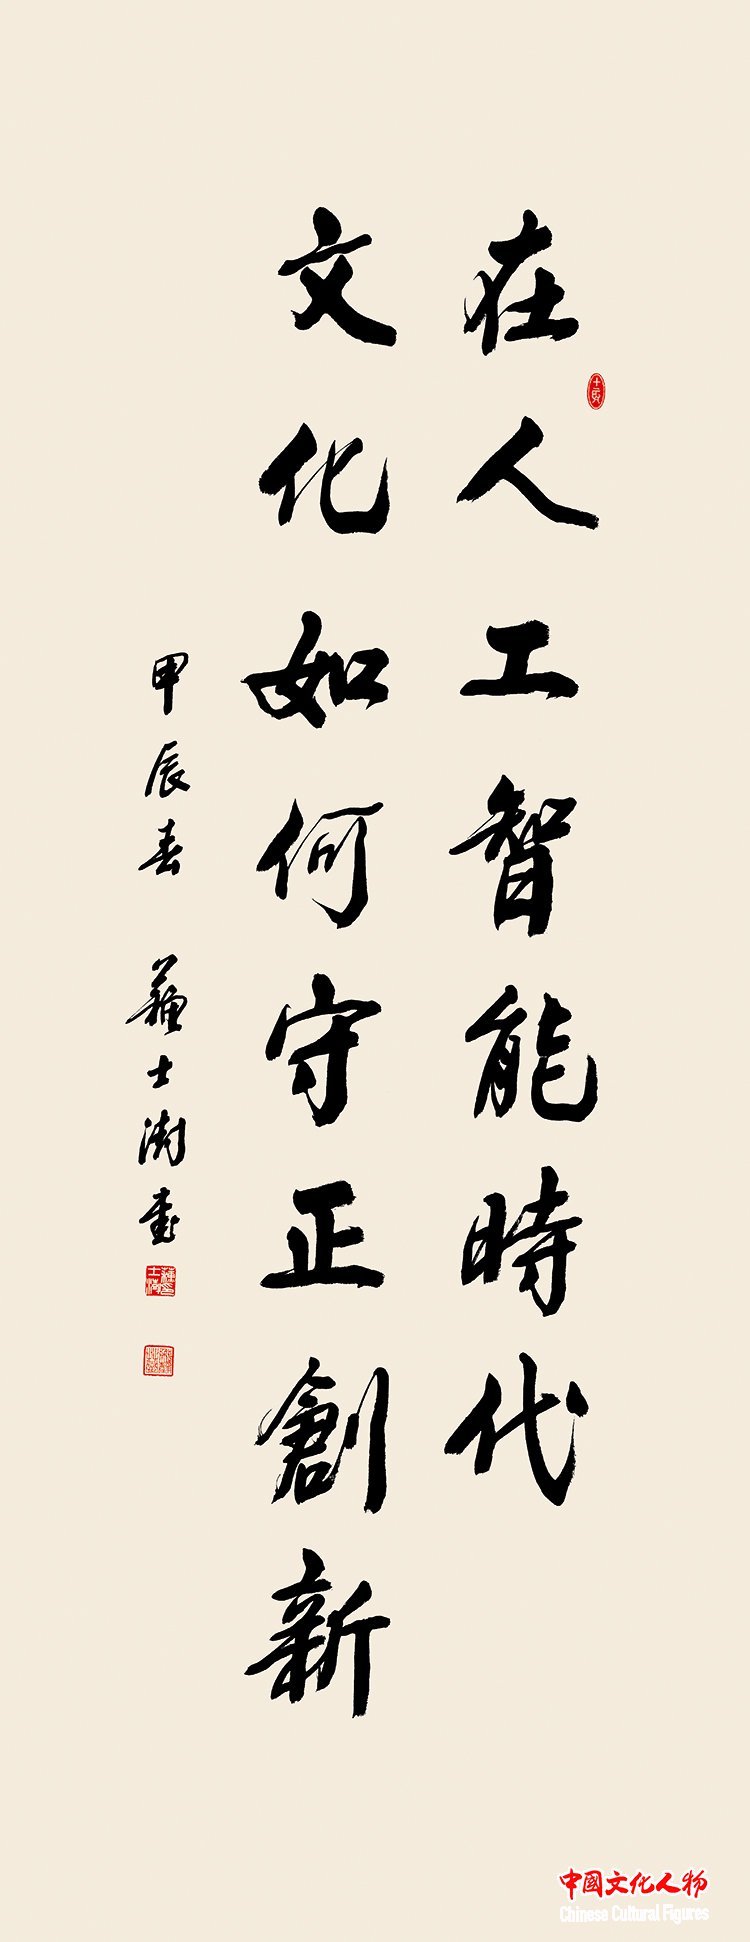 在人工智能時代
文化如何守正創新
甲辰春 蘇士澍書
中国文化人物
Chinese Cultural Figures